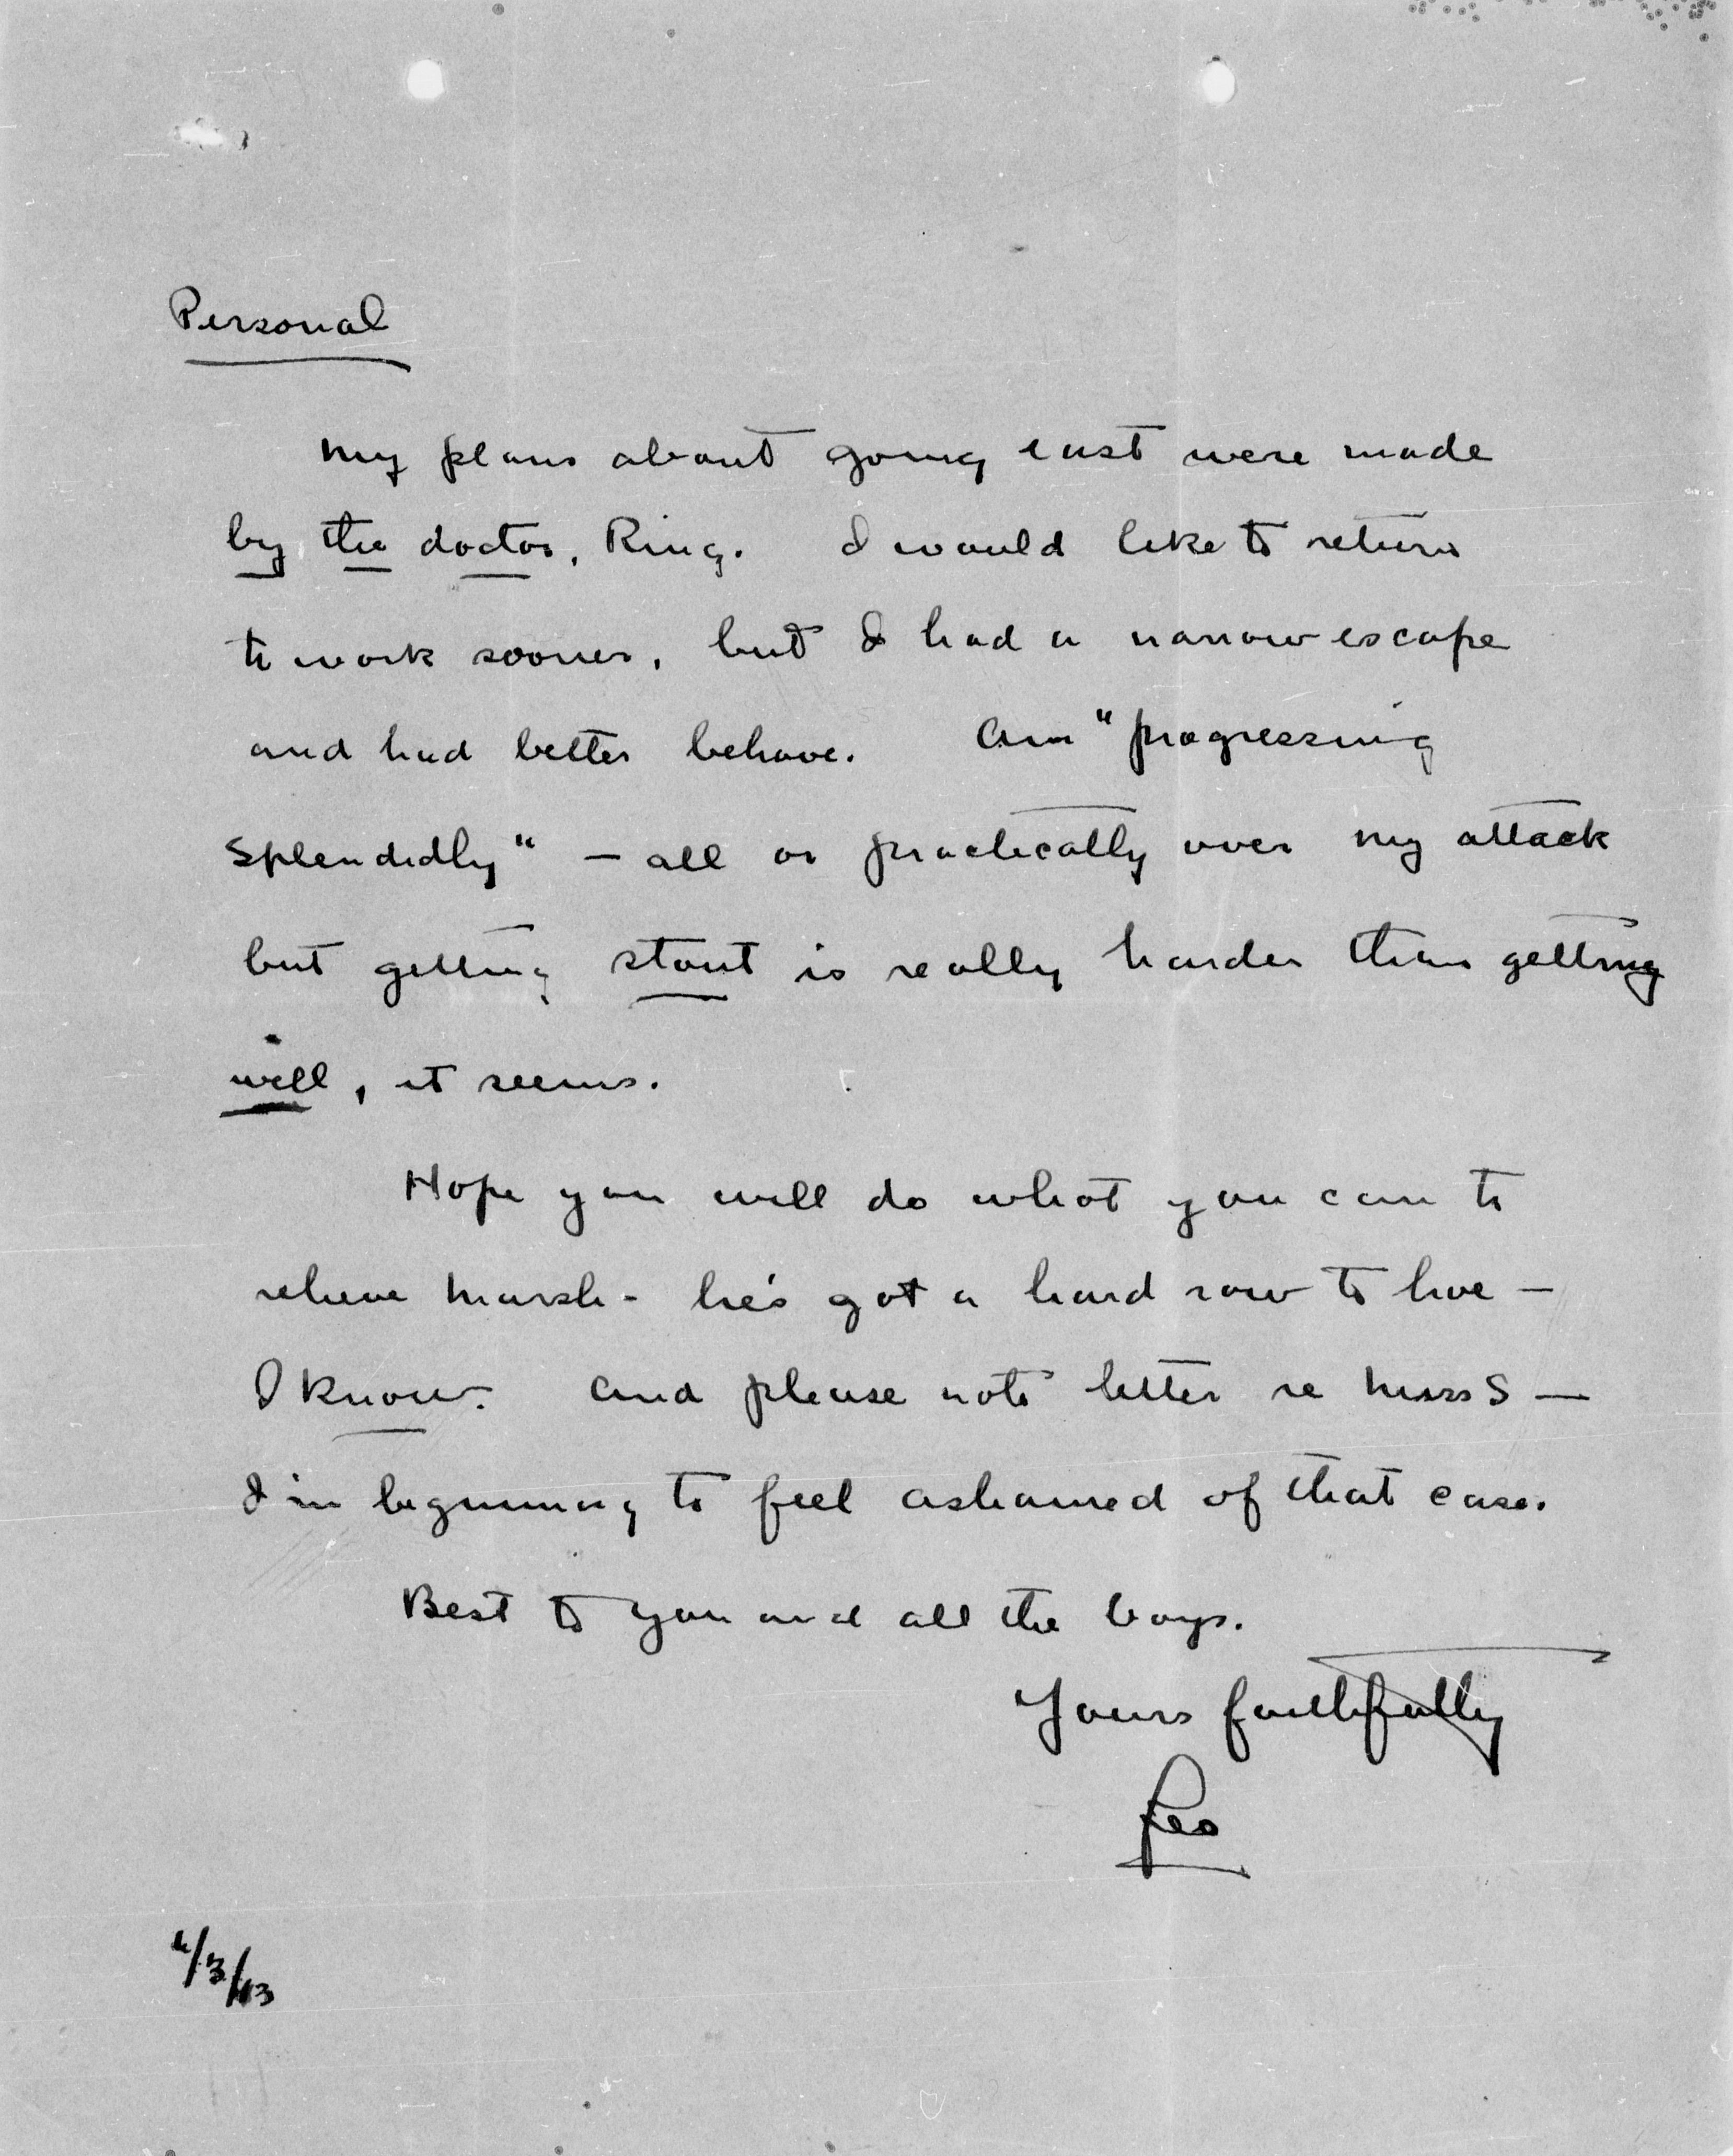 Personal
My plans about going east were made
by the doctor, Ring. I would like to return
to work sooner, but I had a narrow escape
and had better behave. Am "progressing
splendidly" – all or practically over my attack
but getting stout is really harder than getting
well, it seems.
Hope you will do what you can to
relieve Marsh - he's got a hard row to hoe –
I know. And please note letter re Miss S —
I'm beginning to feel ashamed of that case.
Best to you and all the boys.
Yours faithfully
Leo